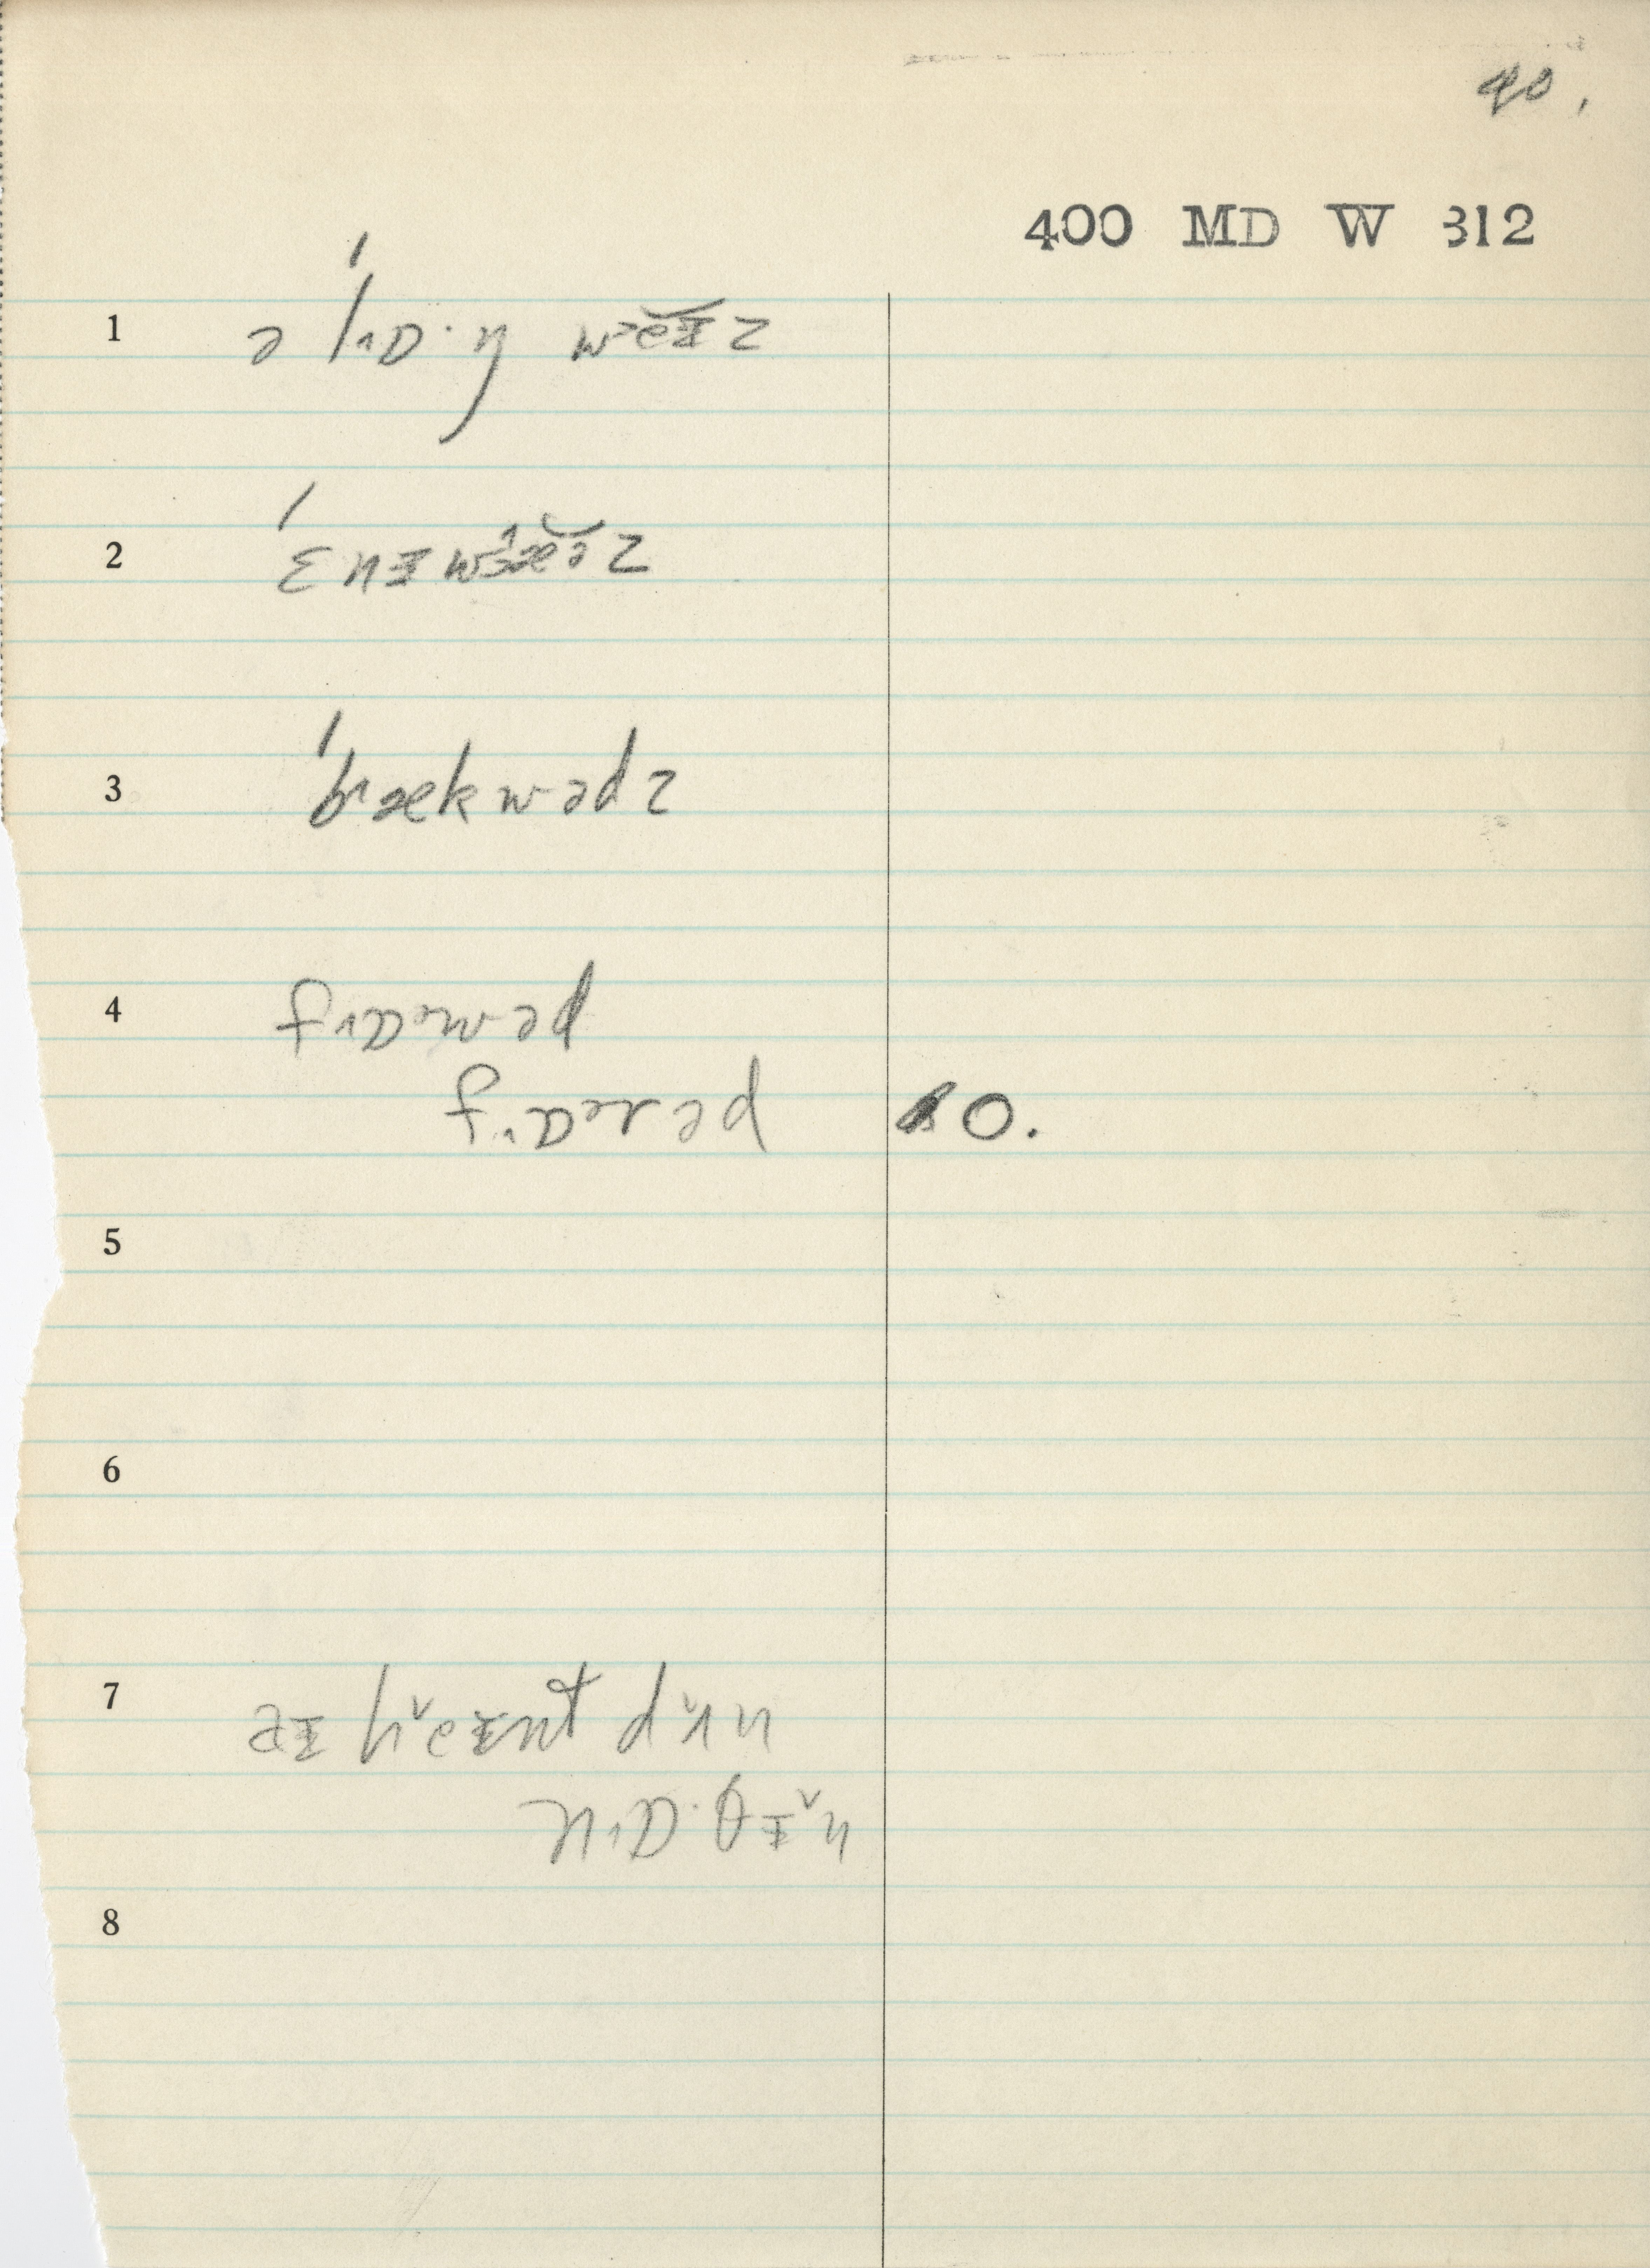 40.
400 MD W 312
1 ə ˈl˄ɒ·ŋ wᵊeɪz
2 ˈɛnɪwɜæəz
3 ˈb˄ækwədz
4 f˄ɒᵊwəd
f˄ɒᵊrəd 10.
5
6
7 aɪ h˅eɪnt d˅ʌn
n˄ɒ·θɪ˅ŋ
8